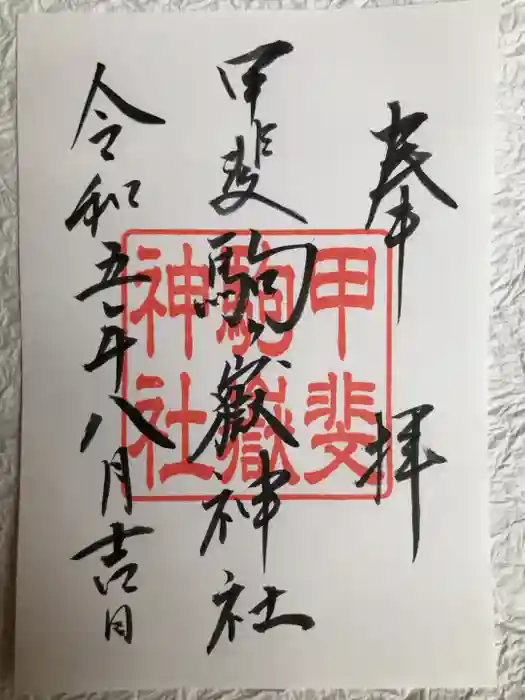 奉拝
甲斐駒ヶ嶽神社
甲斐
駒嶽
神社
令和五年八月吉日